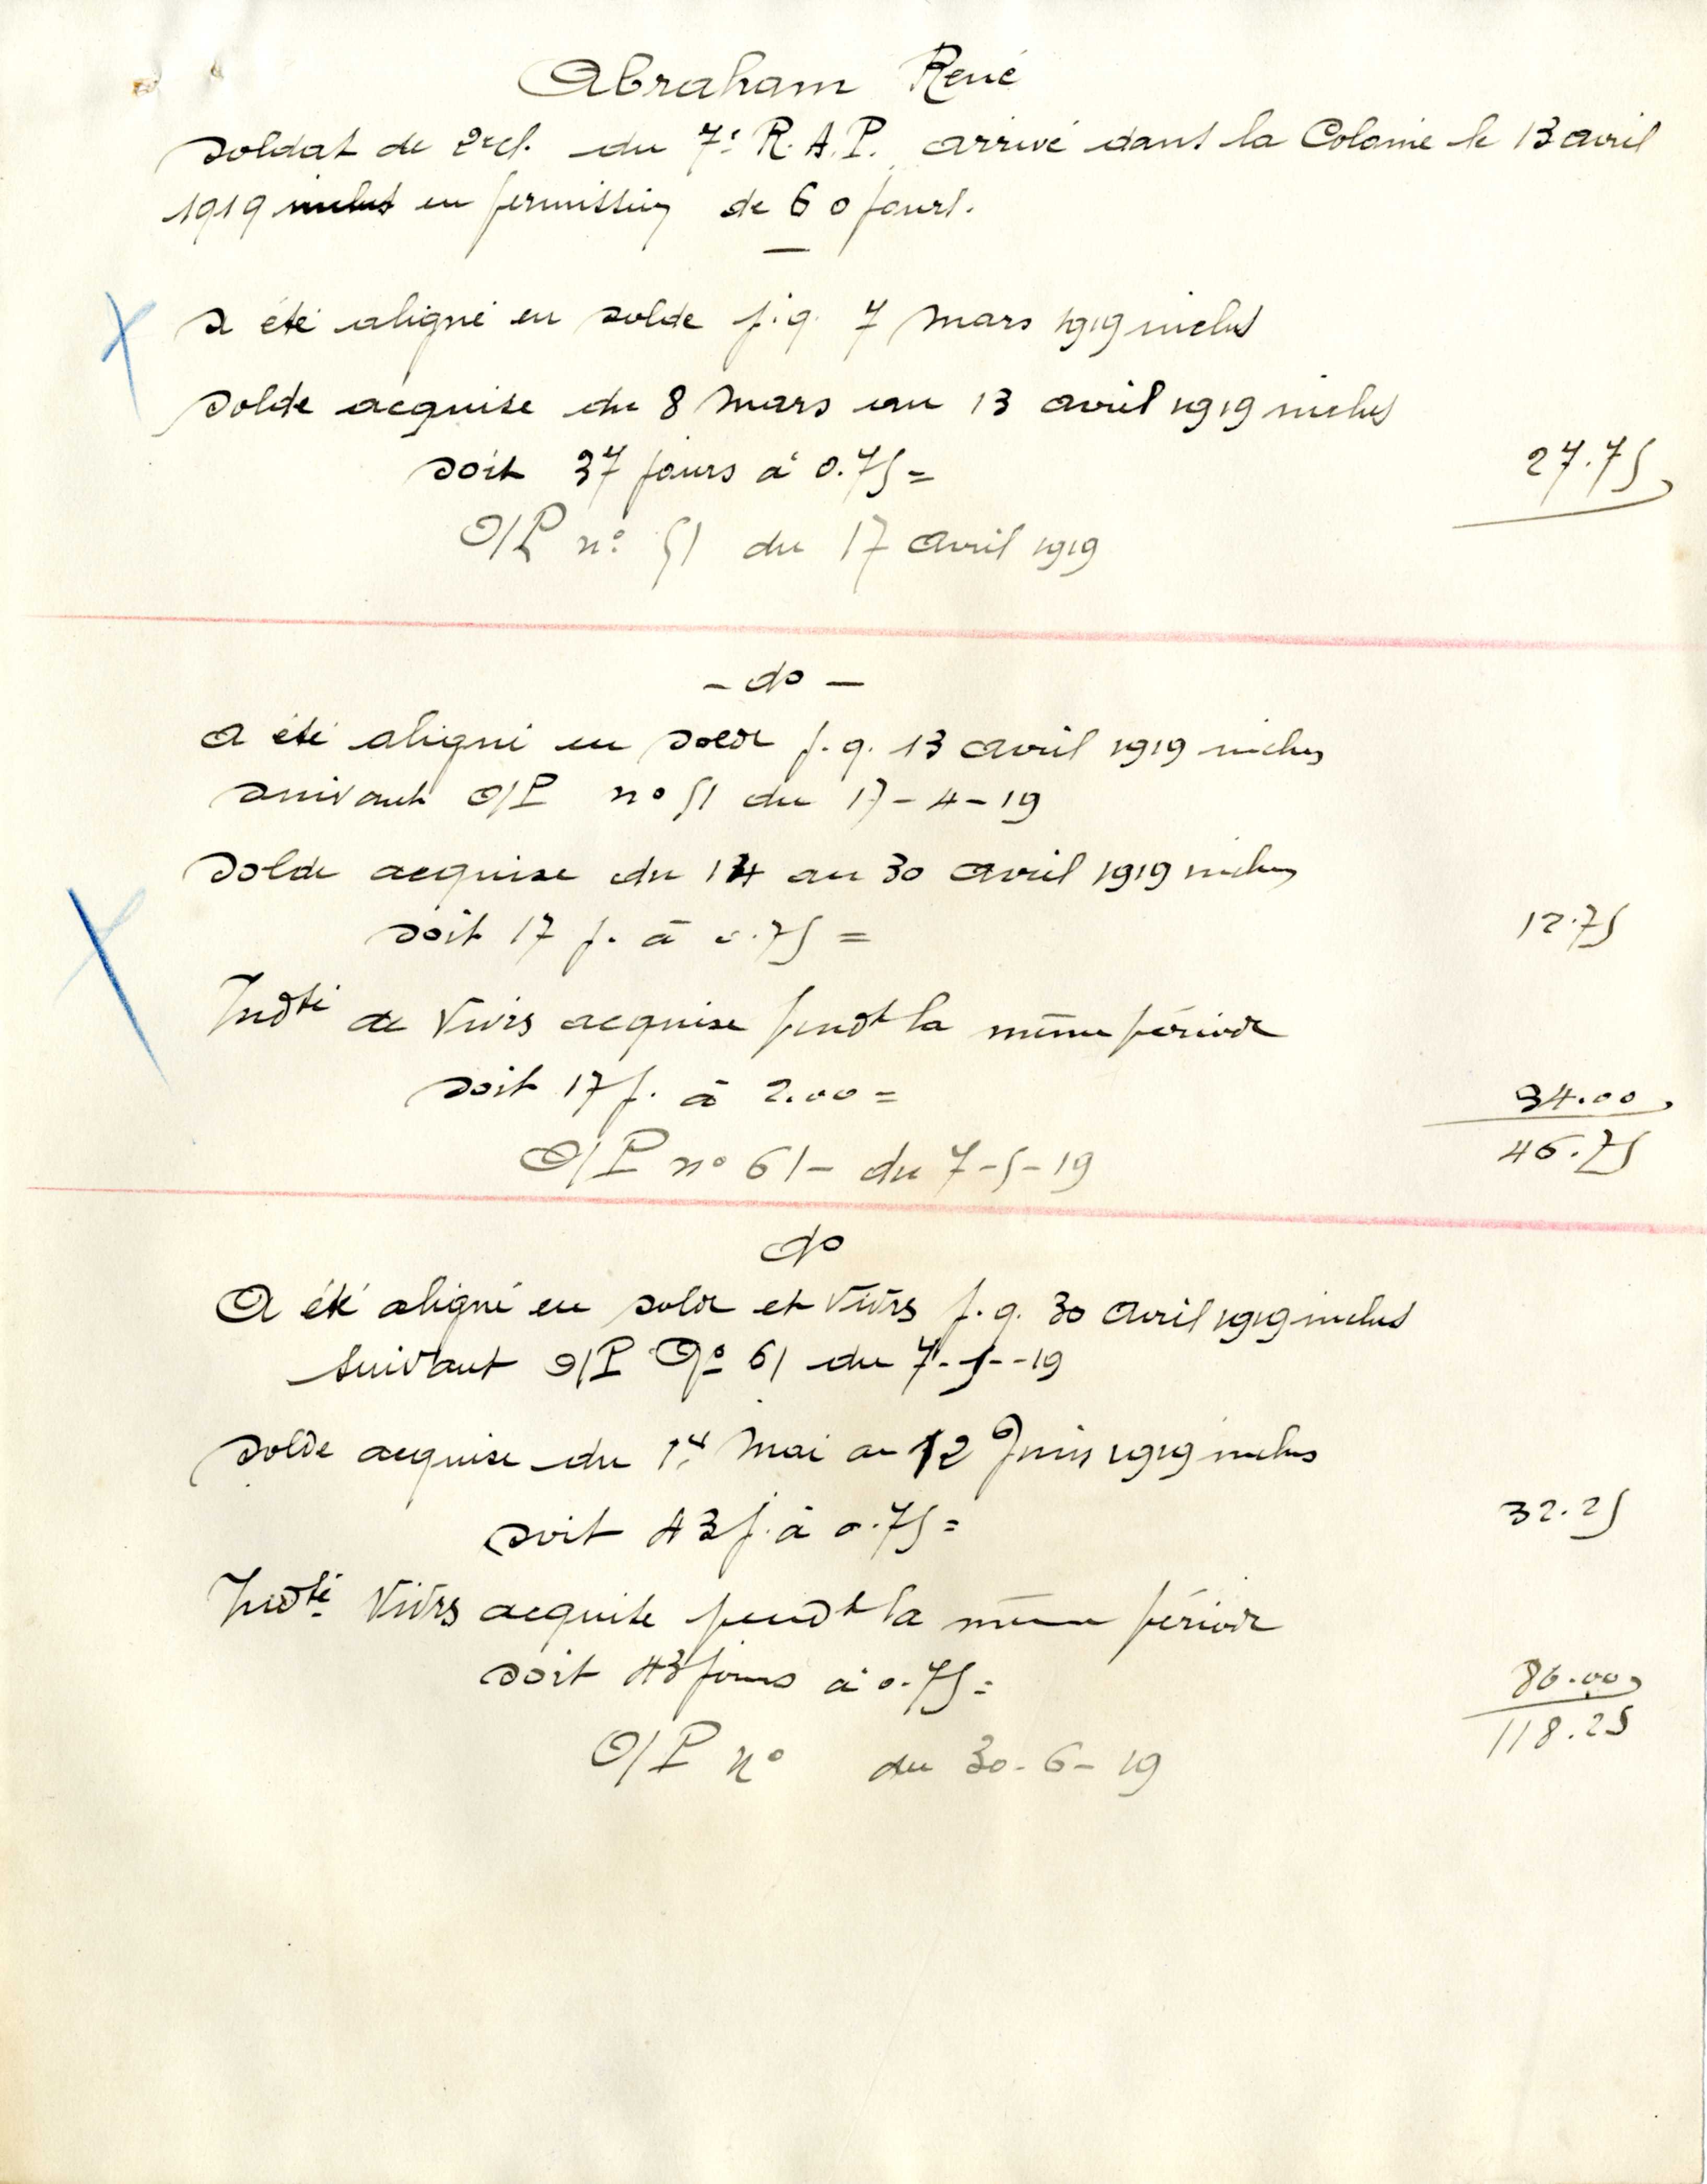 Abraham René
soldat de 2e cl. du 7e R.A.P. arrivé dans la Colonie le 13 avril
1919 inclus en permission de 60 jours.
a été aligné en solde j.q. 7 Mars 1919 inclus
Solde acquise du 8 Mars au 13 avril 1919 inclus
soit 37 jours à 0.75 = 27.75
O/P n° 51 du 17 avril 1919
- do -
a été aligné en solde j.q. 13 avril 1919 inclus
suivant O/P n° 51 du 17-4-19
Solde acquise du 14 au 30 avril 1919 inclus
soit 17 j. à 0.75 = 12.75
Indté de Vivres acquise pendt la même période
soit 17 j. à 2.00 = 34.00
46.75
O/P n° 61 - du 7-5-19
do
A été aligné en solde et Vivres j.q. 30 avril 1919 inclus
suivant O/P N° 61 du 7-5-19
Solde acquise du 1er Mai au 12 Juin 1919 inclus
soit 43 j. à 0.75 = 32.25
Indté Vivres acquise pendt la même période
soit 43 jours à 0.75 = 86.00
118.25
O/P n° du 30-6-19